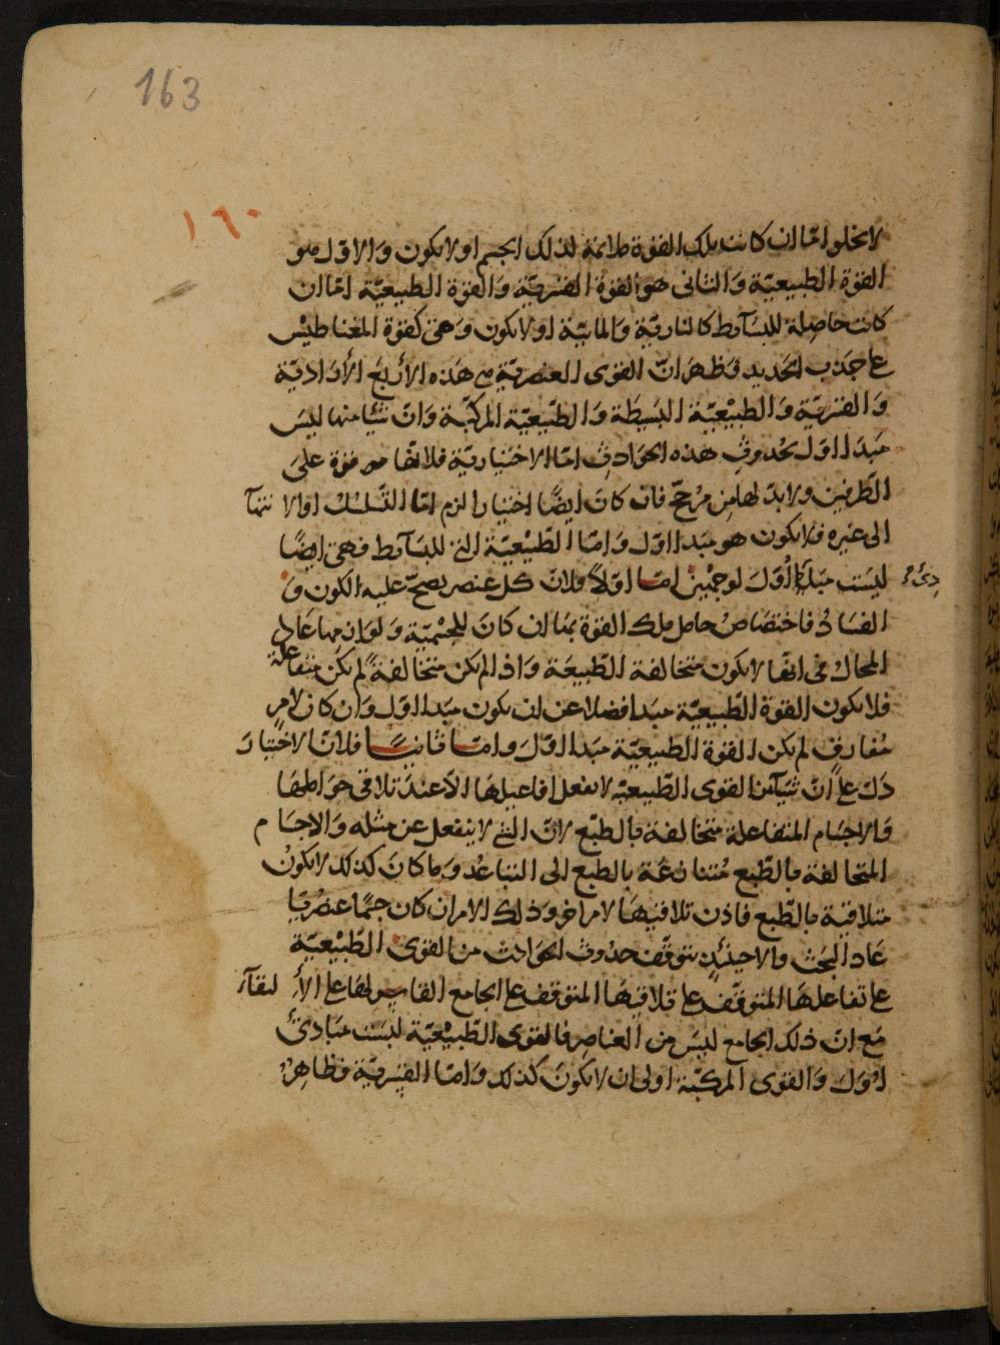 163
١٦٠
لا يخلو امّا ان كانت تلك القوة ملائمة لذلك الجسم او لا يكون وَالاوّل هو
القوة الطبيعيّة وَالثانى هو القوة القسريّة وَالقوة الطبيعيّة امّا ان
كانت حاصلة للبسَآئط كالناريّة وَالمائيّة او لا يكون وَهى كقوة المغناطيْس
على جذب الحديد فظهر انّ القوى العنصريّة هى هَذه الأربَع الأراديّة
وَالقسريّة وَالطبيْعيّة البَسيطَة وَالطبّيعيّة المركبّة وَانّ شيئا منها ليسَ
مَبدَا اوّل لحُدوثِ هذه الحوَادثِ امّا الاختياريّة فلانّها هى قوة علىَ
الطّرفين ولابدّ لها من مرجّح فان كانَ ايضًا اختيارا لزم امّا التّسَلسُل او الانتهآ
الى غيره فلا يكون هو مبَدا اوّل وَامّا الطّبيْعيّة التى للبسَآئط فهى ايضًا
ليسَت مبَدَأ أوّلَ لوجهَينْ امّا اوّلاً فلانّ كل عنصر يصحّ عليه الكون وَ
دىُٔ
الفسَادُ فاختصَاصُ حامل تلك القوة بهَا ان كانَ للجسْميّة وَلوَازمها عَادَ
المحالُ فى انّها لا يكون متخالفة الطّبيعَة وَاذا لم يكن متخالفةً لم يكن متفاعلة
فلا يكون القوة الطّبيعيّة مبَدا فضلا عن ان يكون مبَدا اوّل وَان كان لامرٍ
مُفارق لم يكن القوة الطبيعيّة مبَدا اوّلَ وامّا ثانيًا فلانّ الاختبارَ
دَلّ على انّ شيئا من القوى الطّبيعيّة لا يفعل افاعيلهَا الّا عندَ تلاقى حوَاملهَا
وَالاجسَام المتفاعلة متخالفة بالطّبع لانّ الشئ لا ينفعل عن مثله وَالاجسَام
المتخالفة بالطّبع مُتنازعَة بالطبع الى التباعُد وَما كانَ كذلك لا يكونُ
متلاقيَة بالطّبع فاذن تلاقيهَا لامر اخر وَذلك الامر ان كان جسمًا عنصُريّا
عَاد البحَث والا حينئذٍ يتوقّف حدُوثُ الحوَادث من القوى الطّبيْعيّة
على تفاعلهَا المتوقّفِ على تلاقيهَا المتوقف على الجامع القاسِر لهَا على الألتقآء
مَع انّ ذلك الجامع ليسَ من العناصِر فالقوى الطّبيْعيّة ليسَت مَبَادئَ
اُوَلَ وَالقوى المركبّة اولى ان لا يكونَ كذلك وَامّا القسِريّة فظَاهِرٌ